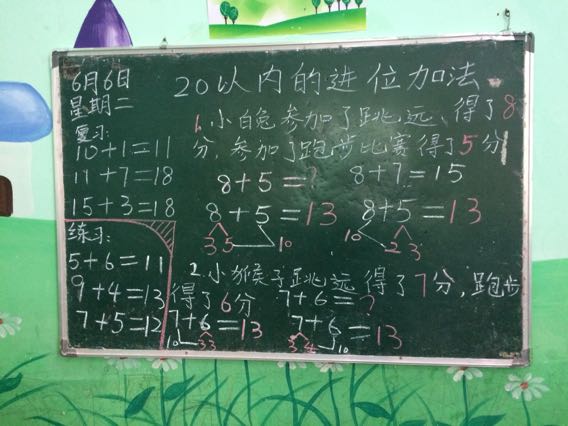 6月6日
星期二
20以内的进位加法
复习:
10+1=11
11+7=18
15+3=18
练习:
5+6=11
9+4=13
7+5=12
1.小白兔参加了跳远、得了8
分,参加了跑步比赛得了5分
8+5=? 8+7=15
8+5=13 8+5=13
3 5 10 10 2 3
2.小猴子跳远得了7分,跑步
得了6分 7+6=?
7+6=13 7+6=13
10 3 3 3 4 10